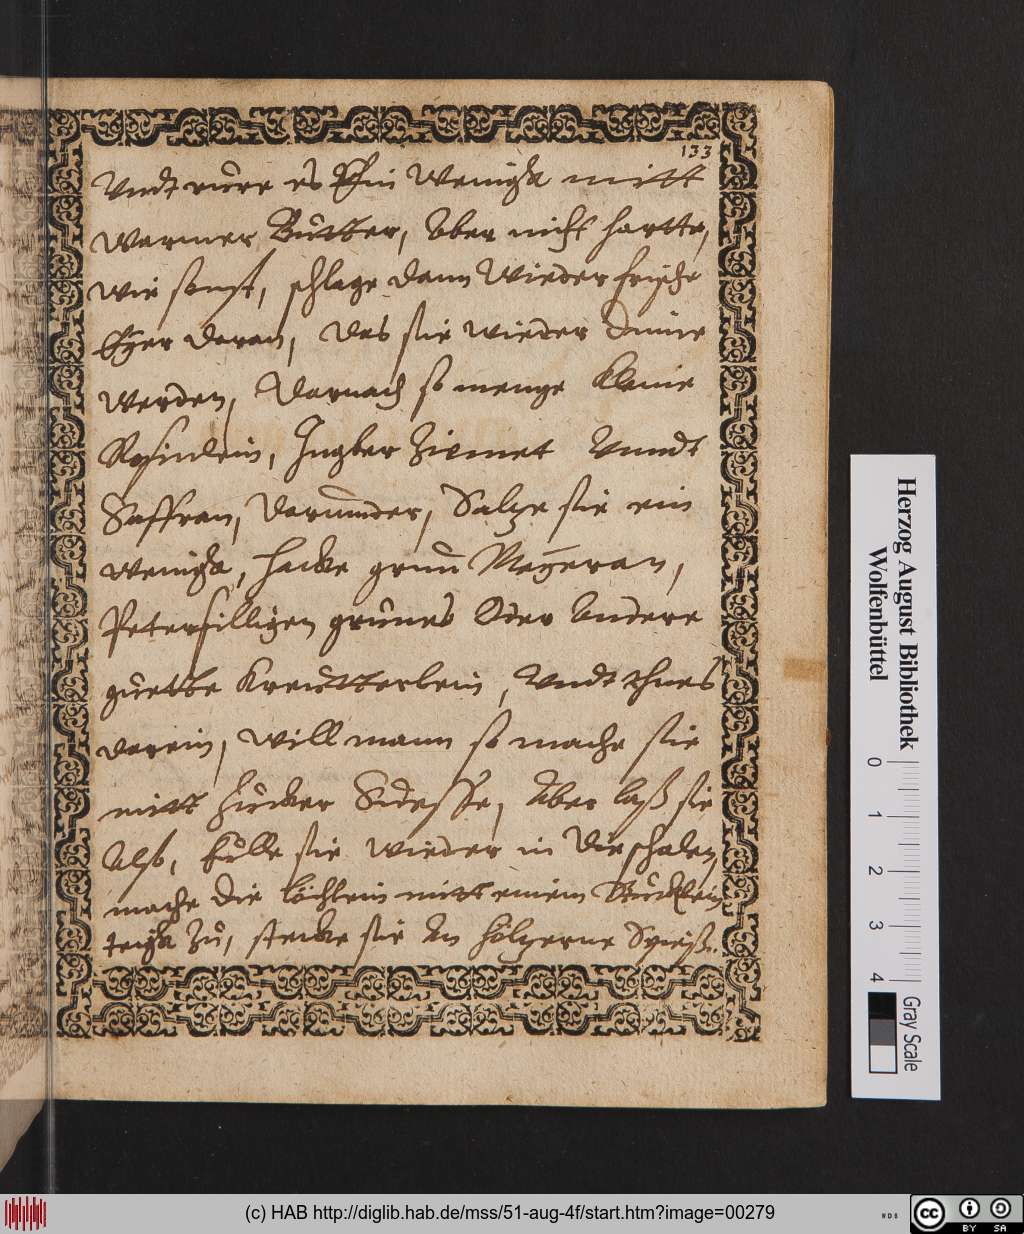 133
Vndt rure es Ein Wenigk mitt
Warmer Butter, Aber nicht hartte,
wie sonst, schlage dann Wieder frische
Eyer daran, das sie wieder dinne
werden, Darnach so menge kleine
Rosinlein, Ingber Zimet Vnndt
Saffran, darunnder, Saltze sie ein
wenigk, hacke grun Mayeran,
Petersilligen grunes Oder Andere
guette Kreutterlein, Vndt thues
darein, Will mann so mache sie
mitt Zucker Sudesse, Aber laß sie
Also, fulle sie wieder in die schalen,
mache die löchlein mitt einem
teigk zu, stecke sie An höltzerne Spieß.
Herzog August Bibliothek
Wolfenbüttel
0 1 2 3 4
Gray Scale
(c) HAB http://diglib.hab.de/mss/51-aug-4f/start.htm?image=00279
WDB
cc
BY SA